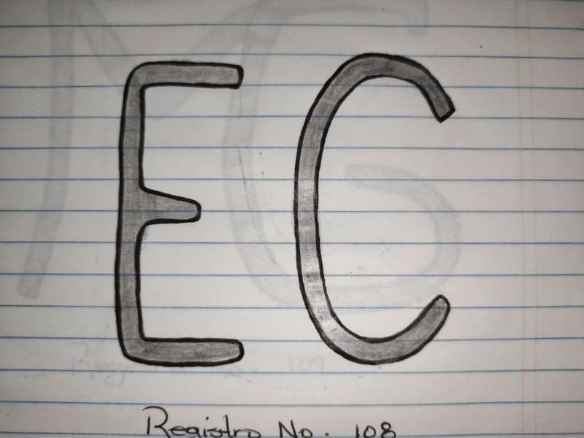 EC
Registro No. 108